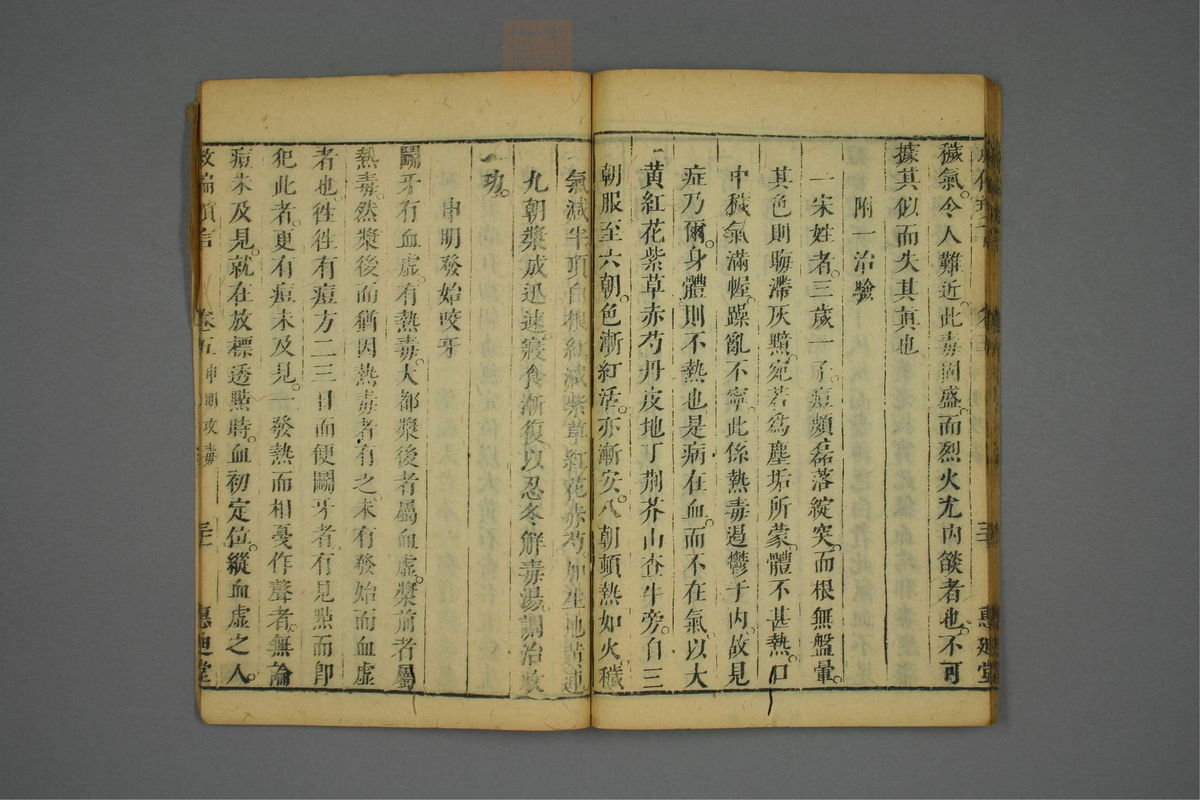 穢氣。令人難近。此毒固盛。而烈火尤內燄者也。不可
據其似而失其眞也
附一治驗
一宋姓者。三歲一子。痘頗磊落綻突。而根無盤暈。
其色則晦滯灰黯。宛若爲塵垢所蒙。體不甚熱。口
中穢氣滿幄。躁亂不寧。此係熱毒遏鬱于內。故見
症乃爾。身體則不熱也。是病在血。而不在氣。以大
黃紅花紫草赤芍丹皮地丁荆芥山查牛旁。自三
朝服至六朝。色漸紅活。亦漸安。八朝頓熱如火。穢
氣減半。頂白根紅。減紫草紅花赤芍。加生地黃連
九朝漿成迅速。寢食漸復。以忍冬解毒湯。調治收
功。
申明發始咬牙
鬭牙有血虛。有熱毒。大都漿後者屬血虛。漿前者屬
熱毒。然漿後而猶因熱毒者有之。未有發始而血虛
者也。徃徃有痘方二三日而便鬭牙者。有見點而卽
犯此者。更有痘未及見。一發熱而相憂作聲者。無論
痘未及見。就在放標透點時。血初定位。縱血虛之人。
救偏瑣言
卷五
申明攻毒
惠迪堂